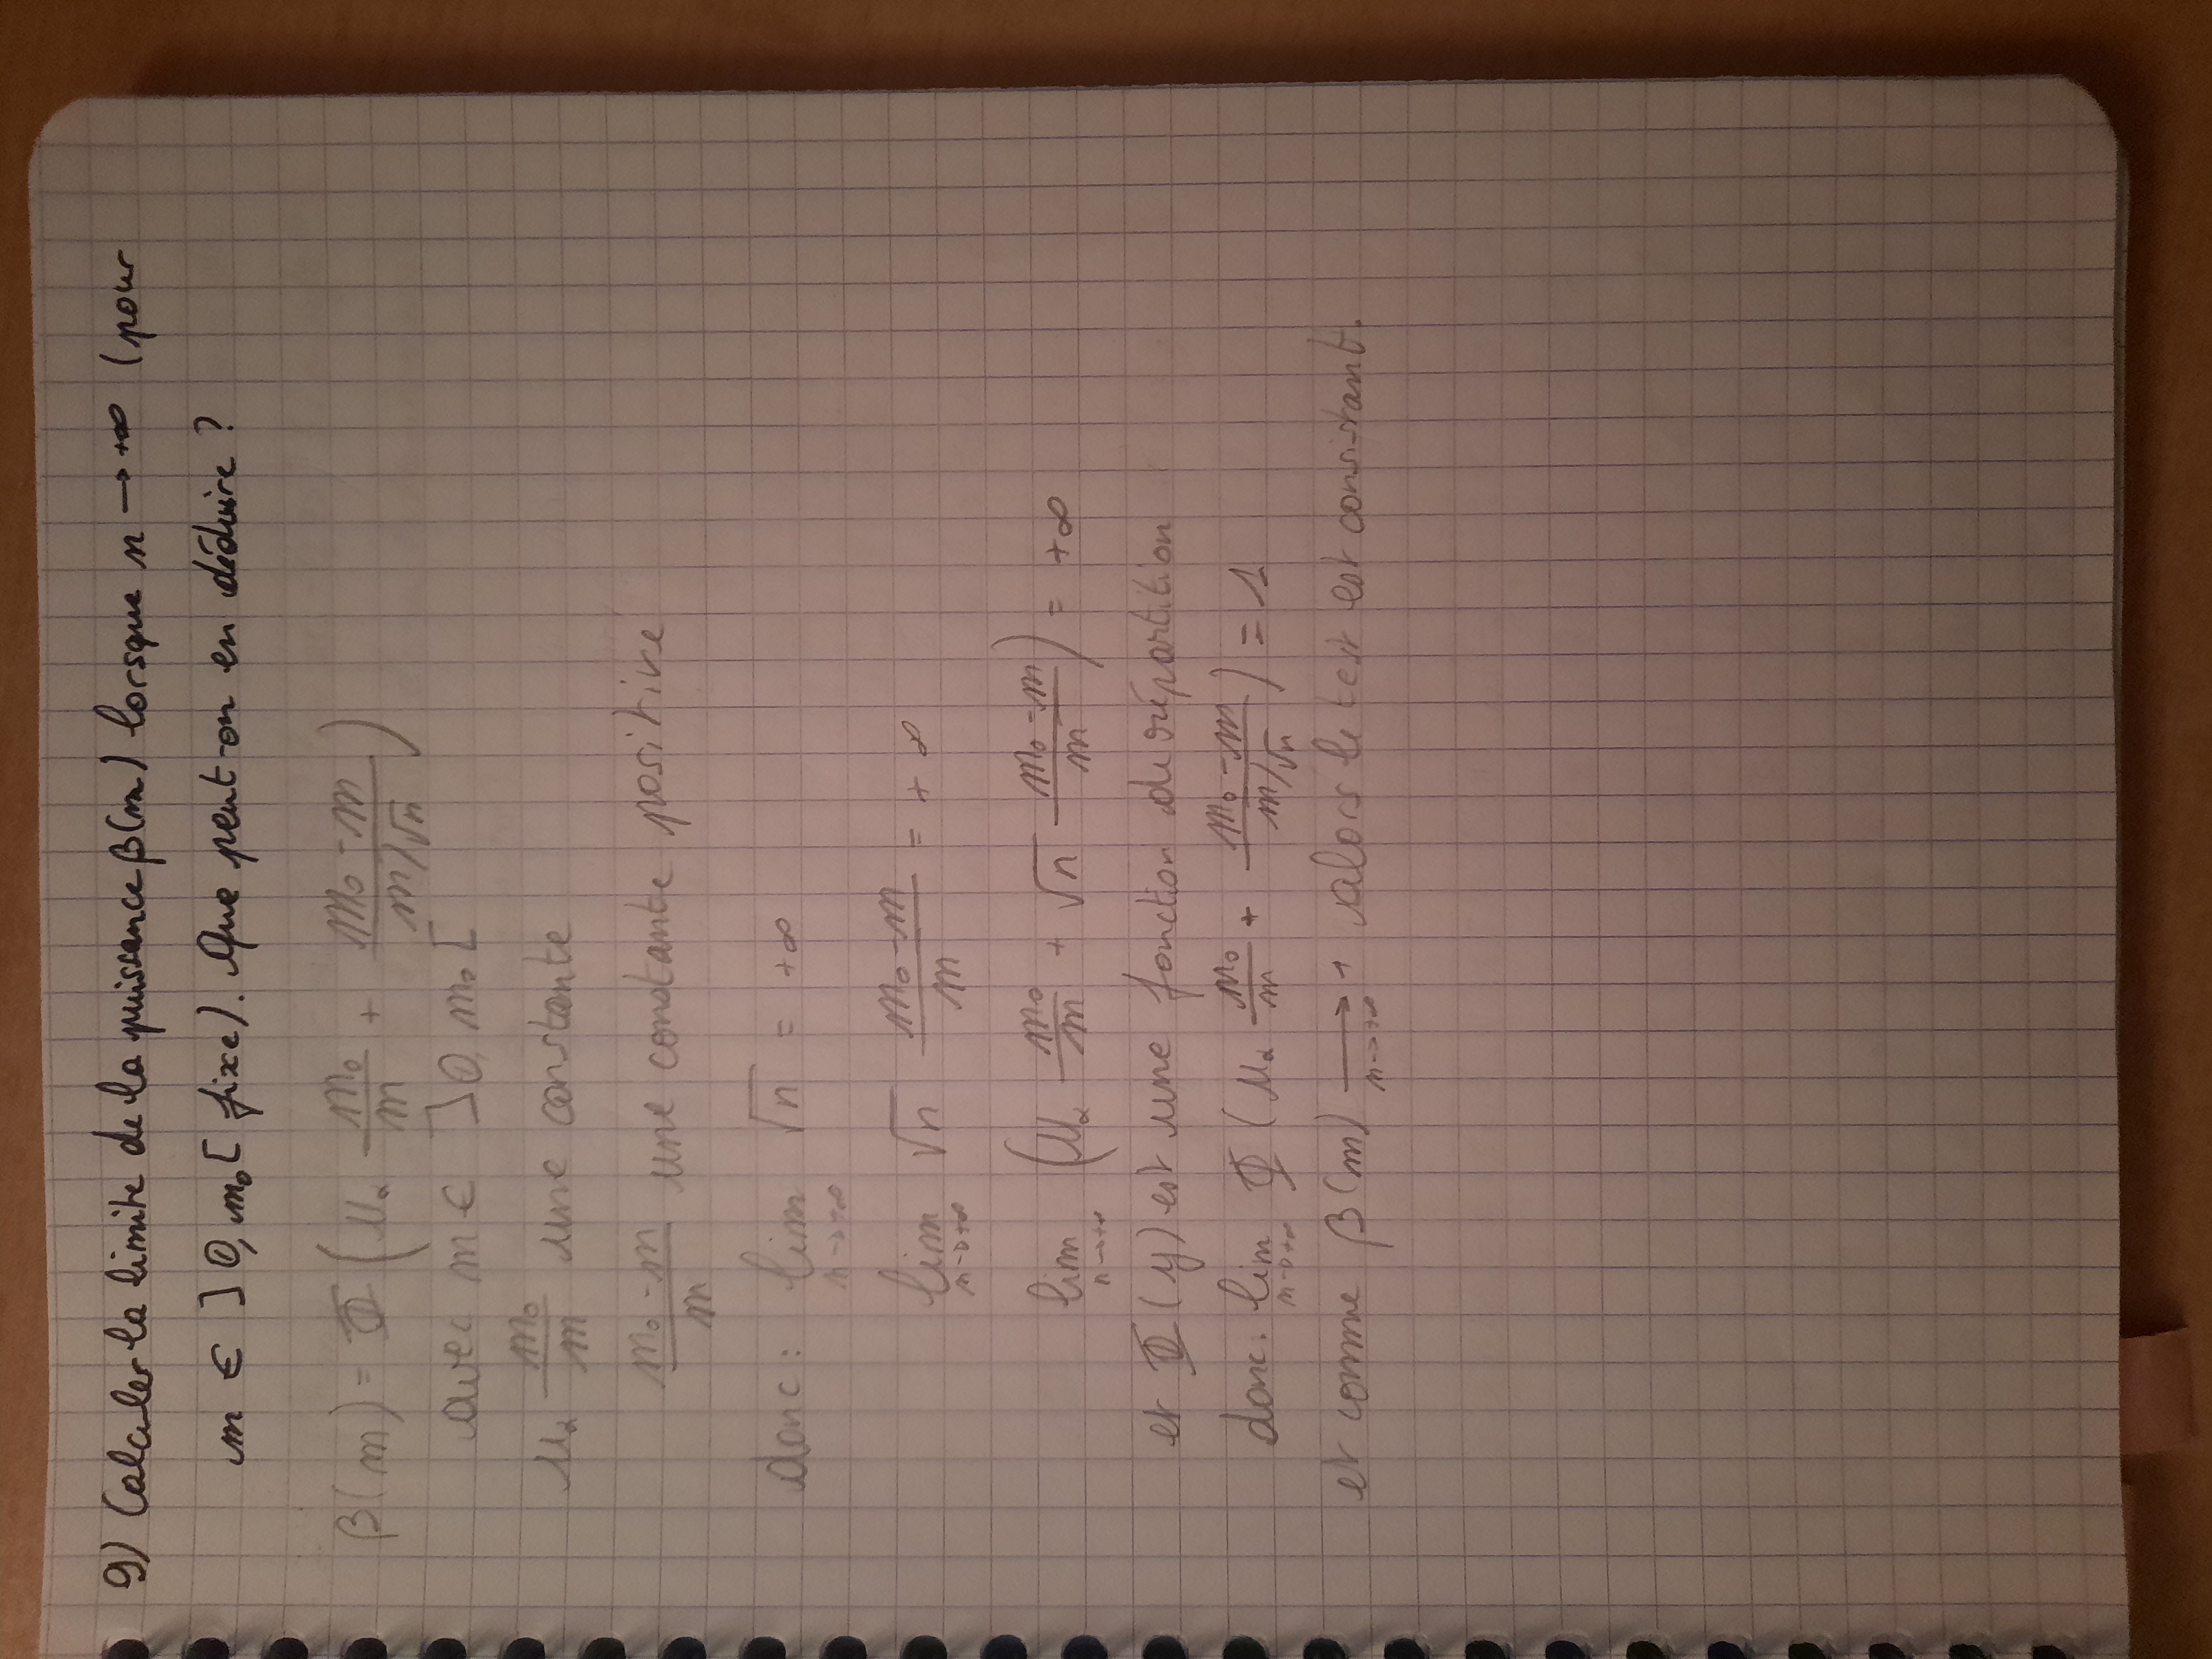 9) Calculer la limite de la puissance β(m) lorsque n → +∞ (pour
m ∈ ]0, m₀[ fixe). Que peut-on en déduire ?
β(m) = Φ ( μ_α m₀/m + (m₀ - m)/(m/√n) )
avec m ∈ ]0, m₀[
μ_α m₀/m une constante
(m₀ - m)/m une constante positive
donc : lim n→+∞ √n = +∞
lim n→+∞ √n (m₀ - m)/m = +∞
lim n→+∞ ( μ_α m₀/m + √n (m₀ - m)/m ) = +∞
et Φ(y) est une fonction de répartition
donc : lim n→+∞ Φ ( μ_α m₀/m + (m₀ - m)/(m/√n) ) = 1
et comme β(m) → n→+∞ 1 alors le test est consistant.